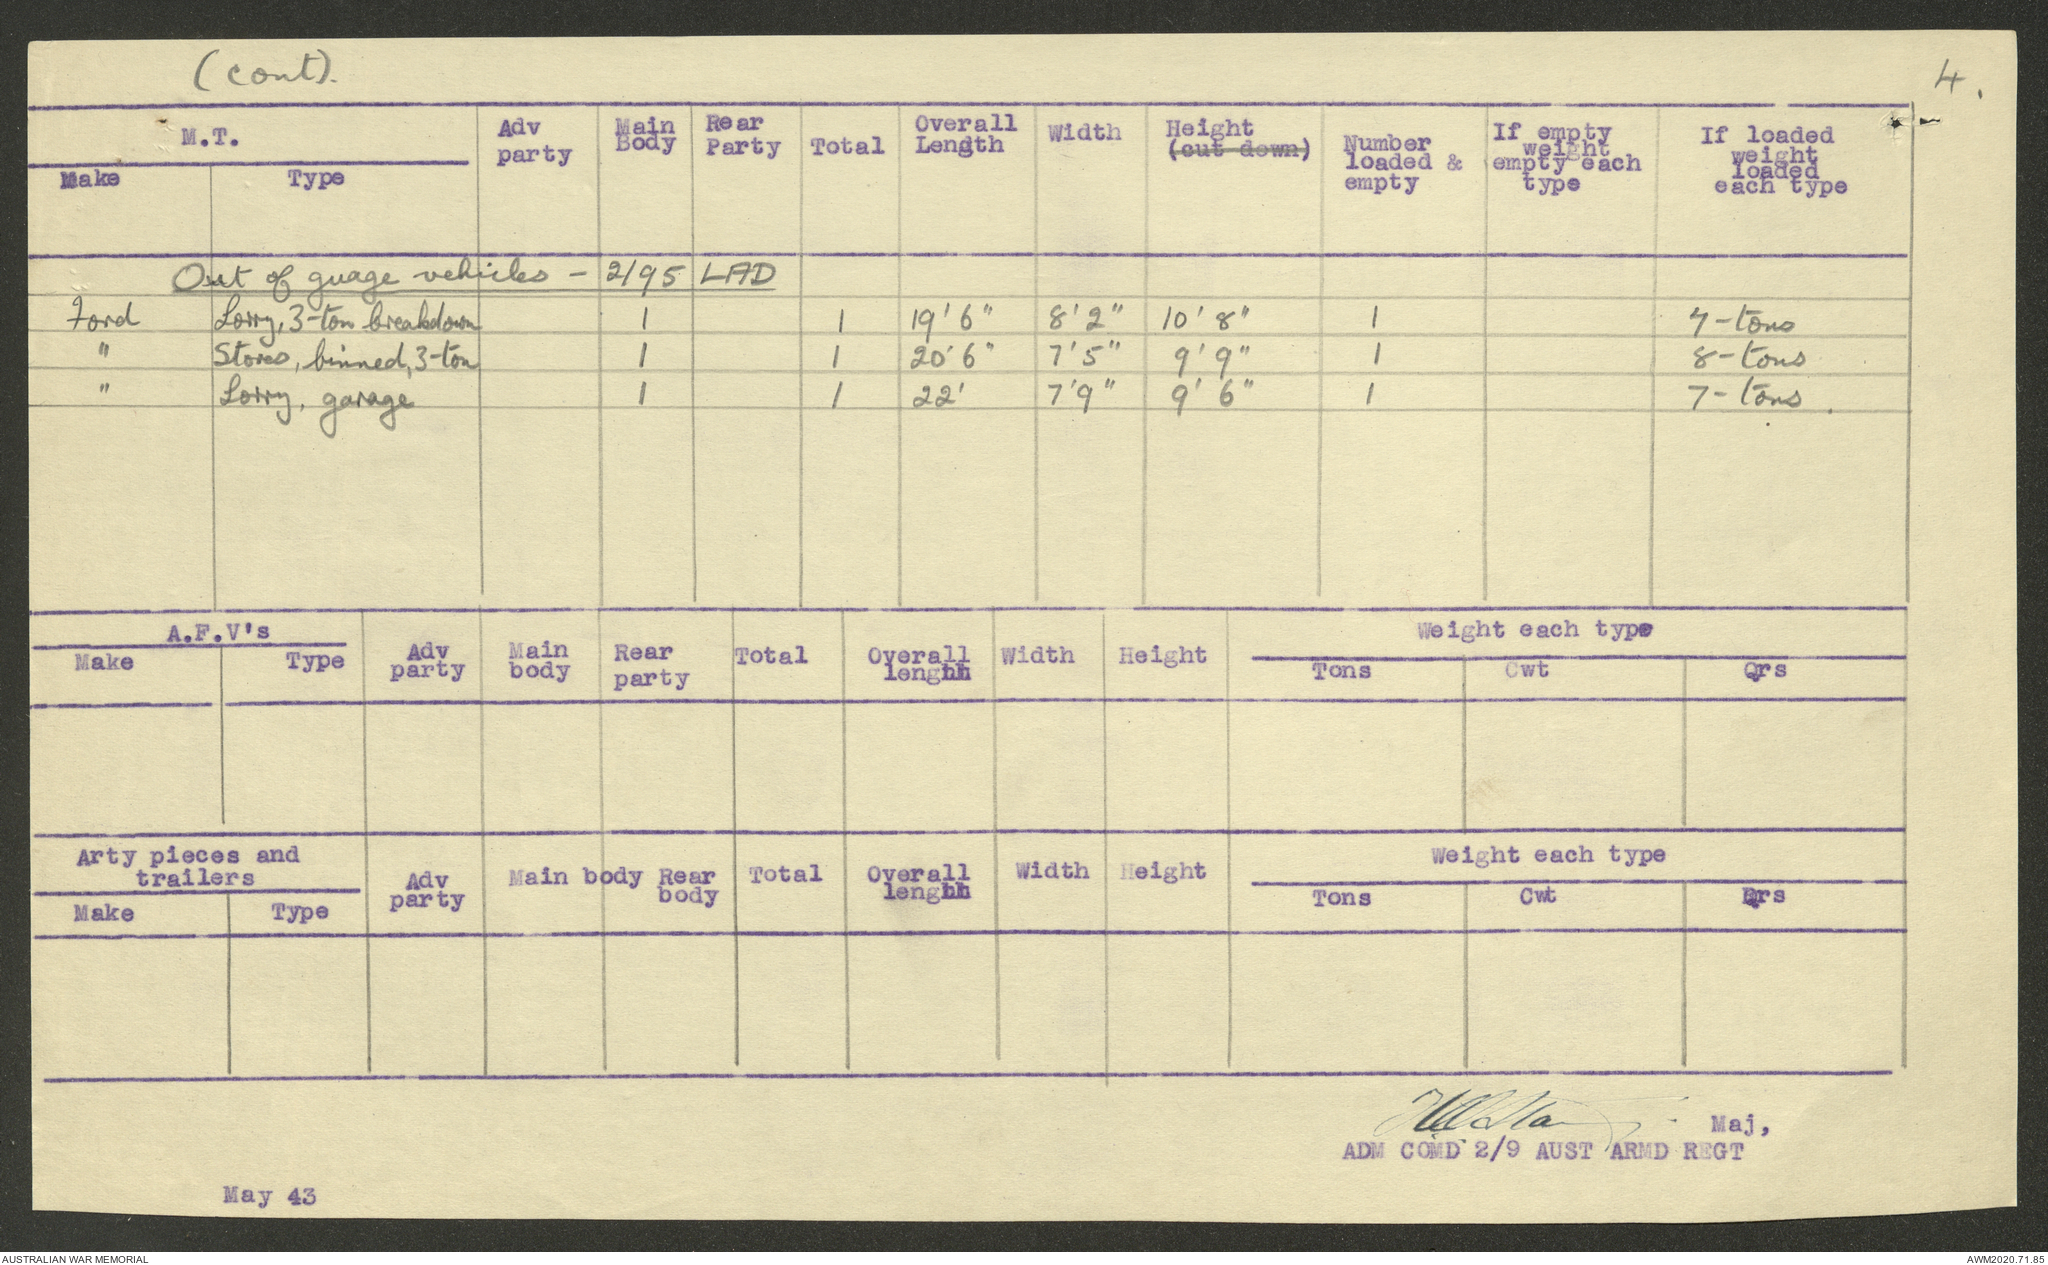 (cont).
4.
M.T.
Make Type
Adv party
Main Body
Rear Party
Total
Overall Length
Width
Height (cut down)
Number loaded & empty
If empty weight empty each type
If loaded weight loaded each type
Out of guage vehicles - 2/95 LAD
Ford Lorry, 3-ton breakdown 1 1 19'6" 8'2" 10'8" 1 7-tons
" Stores, binned, 3-ton 1 1 20'6" 7'5" 9'9" 1 8-tons
" Lorry, garage 1 1 22' 7'9" 9'6" 1 7-tons.
A.F.V's
Make Type
Adv party
Main body
Rear party
Total
Overall length
Width
Height
Weight each type
Tons Cwt Qrs
Arty pieces and trailers
Make Type
Adv party
Main body
Rear body
Total
Overall length
Width
Height
Weight each type
Tons Cwt Qrs
Maj,
ADM COMD 2/9 AUST ARMD REGT
May 43
AUSTRALIAN WAR MEMORIAL
AWM2020.71.85